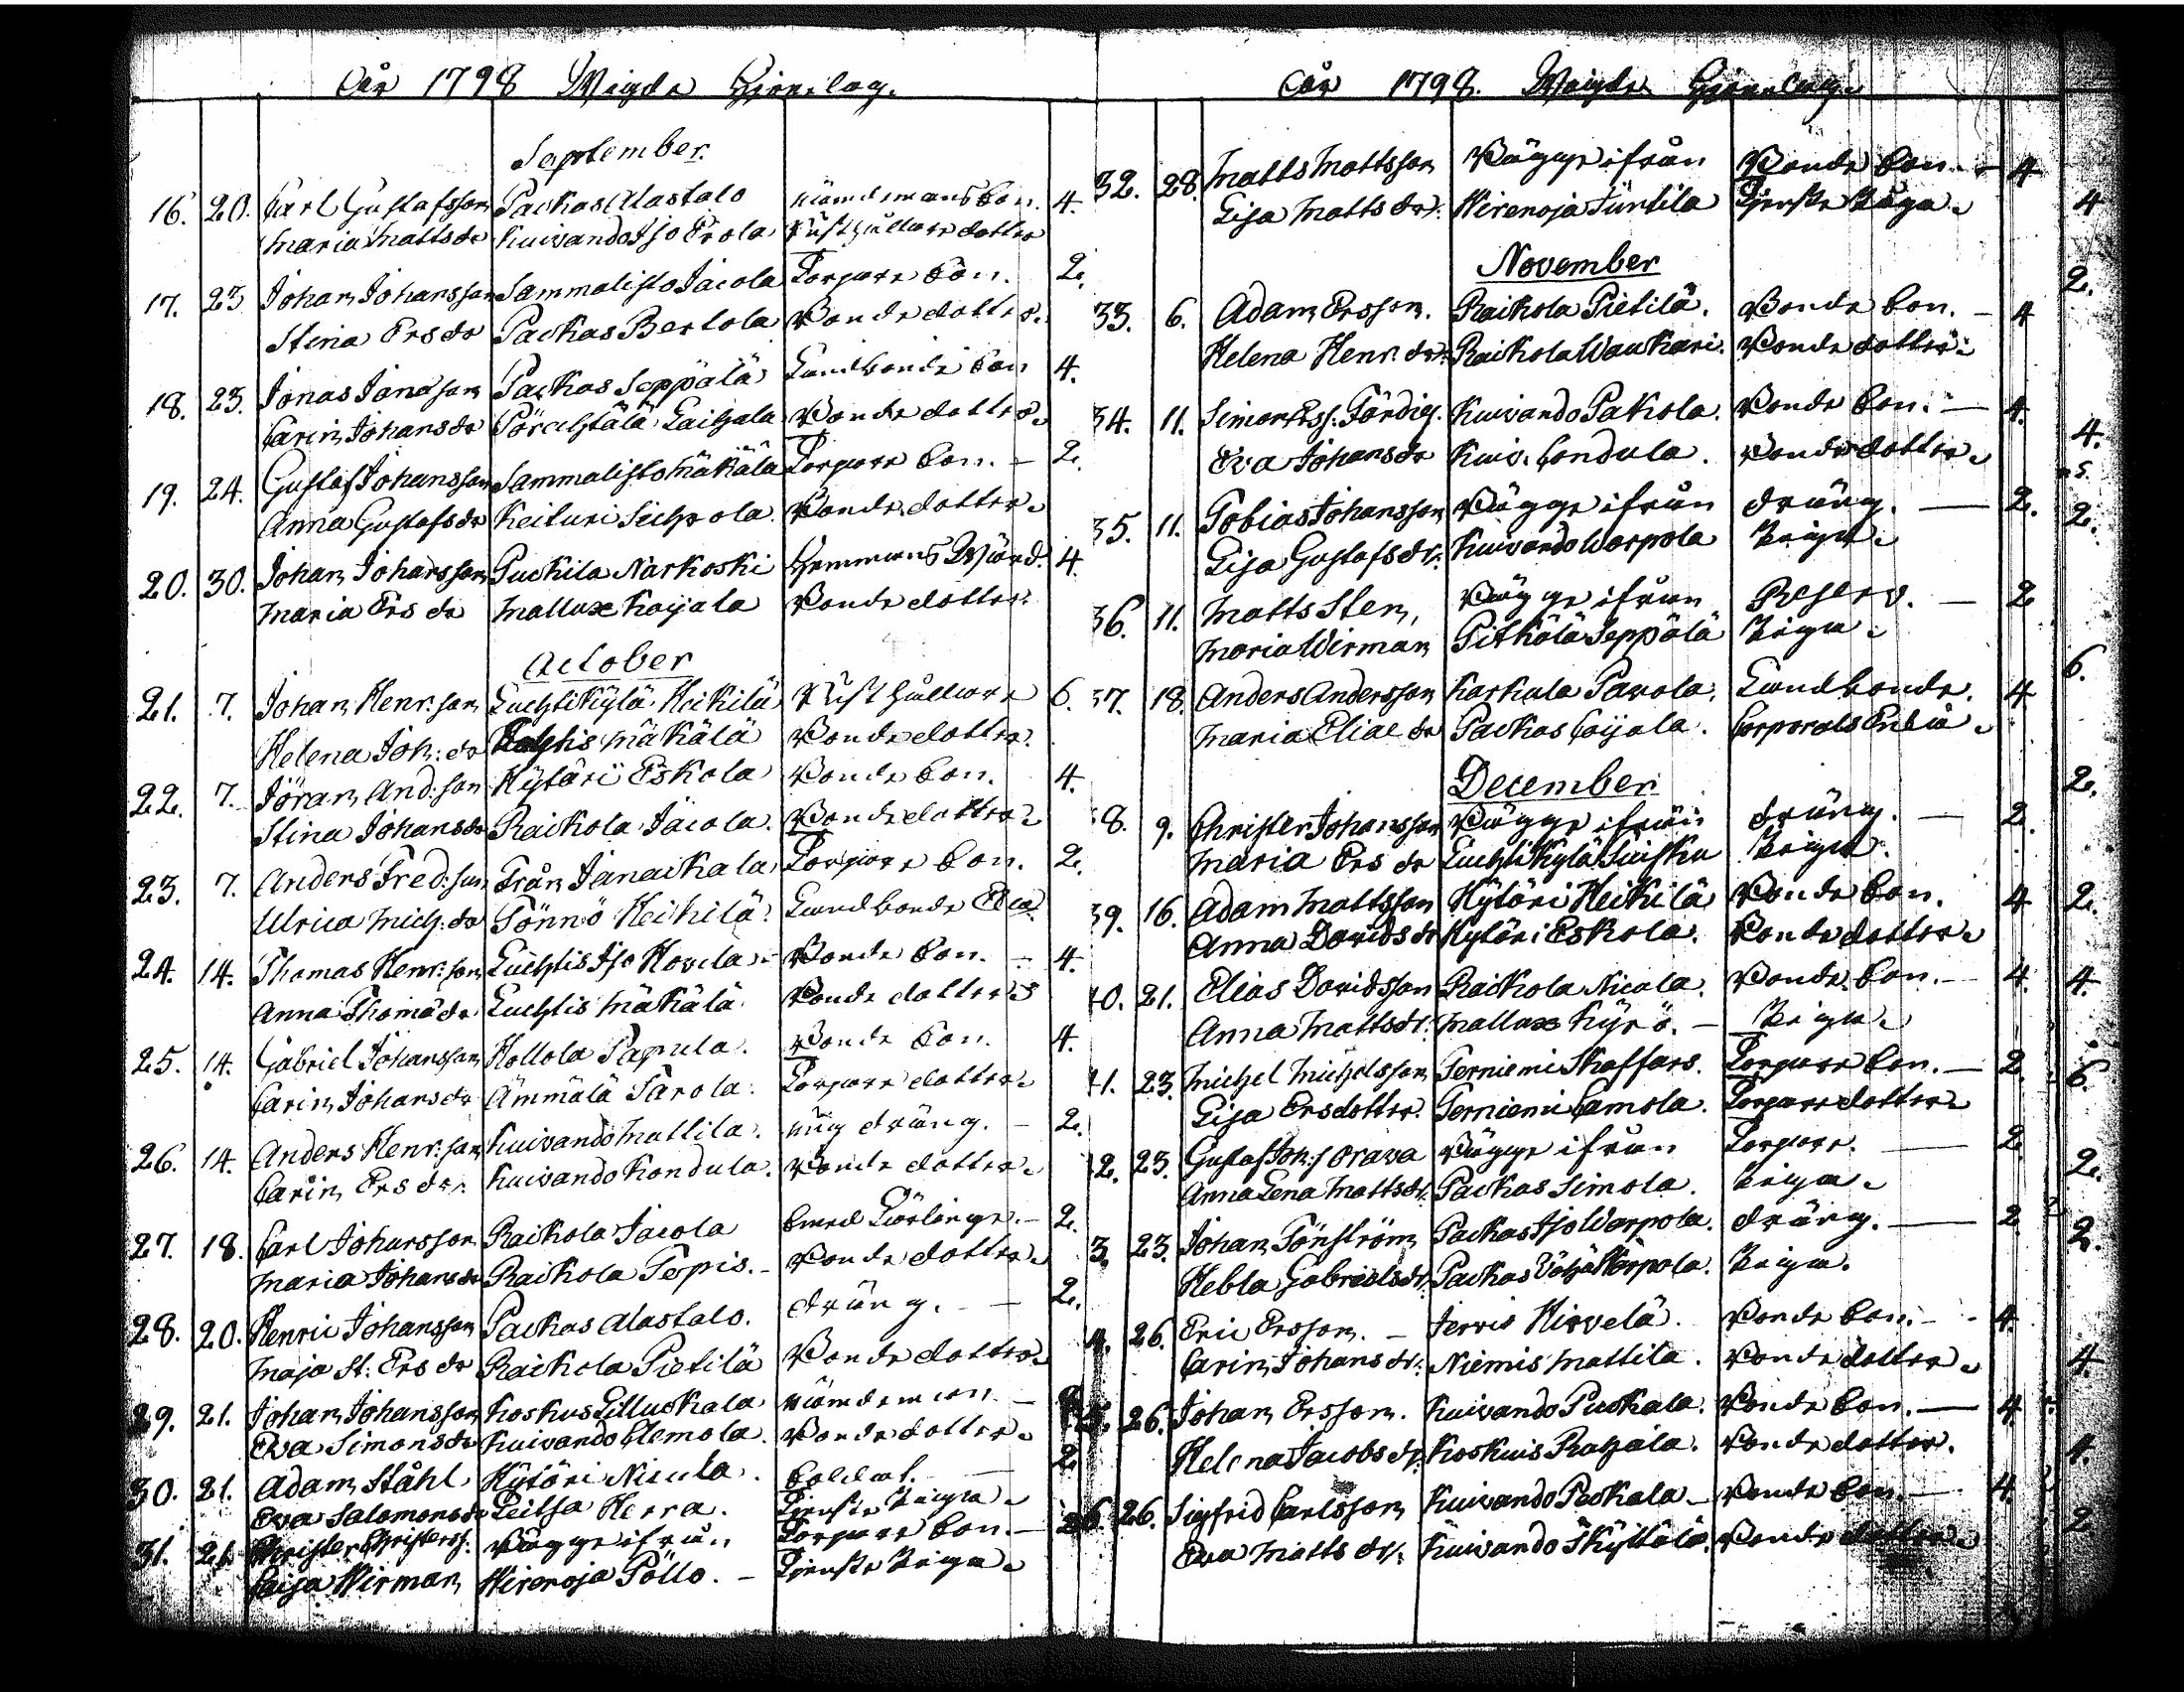 År 1798 Wigde Hjonelag.
September.
16. 20. Carl Gustafsson Packas Alastalo Nämdemans Son. 4.
Maria Mattsdr Kuivando Iso Erola Rusthållare dotter
17. 23 Johan Johansson Sammalisto Jacola Torpare Son. 2.
Stina Ersdr Packas Bertola Bonde dotter.
18. 23. Jonas Jonasson Packas Seppälä Landbonde Son 4.
Carin Johansdr Laihala Bonde dotter.
19. 24. Gustaf Johansson Sammalisto Mäkälä Torpare Son. – 2.
Anna Gustafsdr Keituri Seppola Bonde dotter.
20. 30. Johan Johansson Puckila Narkoski Hemmans Wärd. 4.
Maria Ersdr Mallux Kaijala Bonde dotter.
October
21. 7. Johan Henr:son Luchtikylä Heikilä Rusthållare 6.
Helena Joh:dr Mäkälä Bonde dotter.
22. 7. Jöran And:son Hytöri Eskola Bonde Son. 4.
Stina Johansdr Raickola Jacola. Bonde dotter.
23. 7. Anders Fred:son Från Janackala Torpare Son. 2.
Ulrica Mich:dr Tönnö Heikilä. Landbonde
24. 14. Thomas Henr:son Luchtis Iso Hovila Bonde Son. – 4.
Anna Thomædr Luchtis Mäkälä Bonde dotter
25. 14. Gabriel Johansson Hollola Papula. Bonde Son. 4.
Carin Johansdr Ämmälä Parola. Torpare dotter.
26. 14. Anders Henr:son Kuivando Mattila. dräng. – 2.
Carin Ersdr. Kuivando Kondula. Bonde dotter.
27. 18. Carl Johansson Raickola Jacola Smed Lärlinge. – 2.
Maria Johansdr Raickola Topis. – Bonde dotter.
28. 20. Henric Johansson Packas Alastalo. dräng. – 2.
Maja St: Ersdr Raickola Pietilä Bonde dotter.
29. 21. Johan Johansson Koskus Nämdeman –
Eva Simonsdr Kuivando Clemola. Bonde dotter.
30. 21. Adam Ståhl Hytöri Nicula. Soldat. – 2
Eva Salomonsdr Leitsa Herra. Tjenste Piga.
31. 21. Christer Christerss. Bägge ifrån Torpare Son. – 2
Caisa Wirman Hirenoja Pöllo. – Tjenste Piga.
År 1798. Wigde Hjonelag.
32. 28. Matts Mattsson Bägge ifrån Bonde Son. – 4
Lisa Mattsdr. Hirenoja Tuntila Tjenste Piga.
November
33. 6. Adam Ersson. Raikola Pietilä. Bonde Son. – 4
Helena Henr.dr. Raikola Waukari. Bonde dotter.
34. 11. Simon Erss. Färdig. Kuivando Pakola. Bonde Son. – 4.
Eva Johansdr Kuiv. Condula. Bonde dotter.
35. 11. Tobias Johansson Bägge ifrån dräng. – 2.
Lisa Gustafsdr. Kuivando Warpola Piga.
36. 11. Matts Sten, Bägge ifrån Reserv. – 2
Maria Wirman Pitkälä Seppälä Piga.
37. 18. Anders Andersson Karkula Parola. Landbonde. 4
Maria Eliædr Packas Caijala. Corporals Enkia.
December
8. 9. Christer Johansson Bägge ifrån dräng. – 2.
Maria Ersdr Luchtikylä Piga.
39. 16. Adam Mattsson Hytöri Heikilä Bonde Son. 4
Anna Davidsdr Hytöri Eskola. Bonde dotter.
40. 21. Elias Davidsson Raikola Nicola. Bonde Son. – 4.
Anna Mattsdr. Mallux Kyrö. – Piga.
41. 23. Michel Michelsson Terniemi Skaffars. Torpare Son. – 2.
Lisa Ersdotter. Terniemi Camola. Torpare dotter.
2. 23. Gustaf Joh:s Orava Bägge ifrån Torpare. – 2
Anna Lena Mattsdr. Packas Simola. Piga.
3. 23. Johan Tönström Packas Iso Warpola. dräng. – 2
Hebla Gabrielsdr. Packas Wähä Warpola. Piga.
4. 26. Eric Ersson. – Jervis Hirvelä. Bonde Son. – 4.
Carin Johansdr. Niemis Mattila. Bonde dotter.
26. Johan Ersson. Kuivando Puckala. Bonde Son. – 4
Helena Jacobsdr. Koskuis Rahala. Bonde dotter.
6. 26. Sigfrid Carlsson Kuivando Packala – Bonde Son. – 4.
Eva Mattsdr. Kuivando Skyttälä. Bonde dotter.
4
2.
4.
2.
6.
2.
2.
4.
6.
2.
2.
4.
4.
2